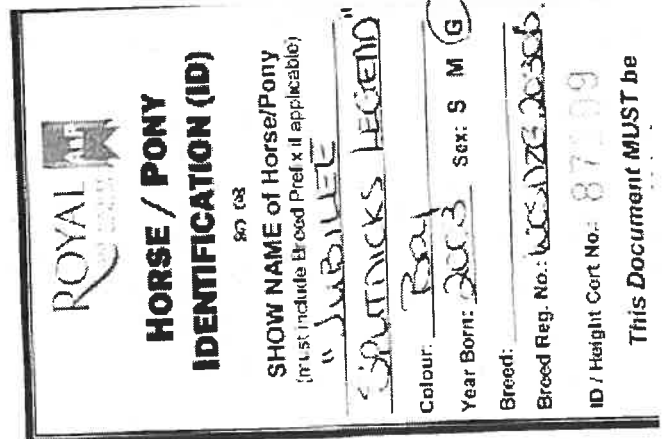 ROYAL
HORSE / PONY
IDENTIFICATION (ID)
SHOW NAME of Horse/Pony
(must include Breed Prefix if applicable)
"JUBILEE
SPUTNICKS LEGEND"
Colour: Bay
Year Born: 2003 Sex: S M G
Breed:
Breed Reg. No.:
ID / Height Cert No.:
This Document MUST be